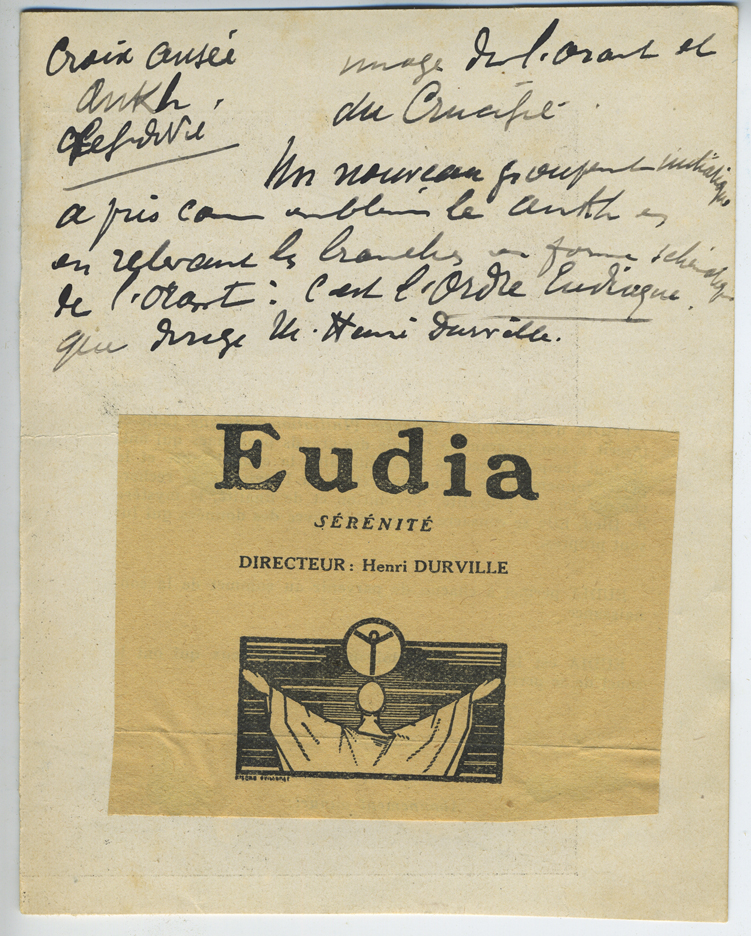 Croix ansée
Ankh.
Clef de Vie
image de l'orant et
du Crucifié.
Un nouveau groupement initiatique
a pris comme emblème le ankh
en relevant les branches en forme
de l'orant : c'est l'Ordre Eudiaque
que dirige M. Henri Durville.
Eudia
SÉRÉNITÉ
DIRECTEUR : Henri DURVILLE